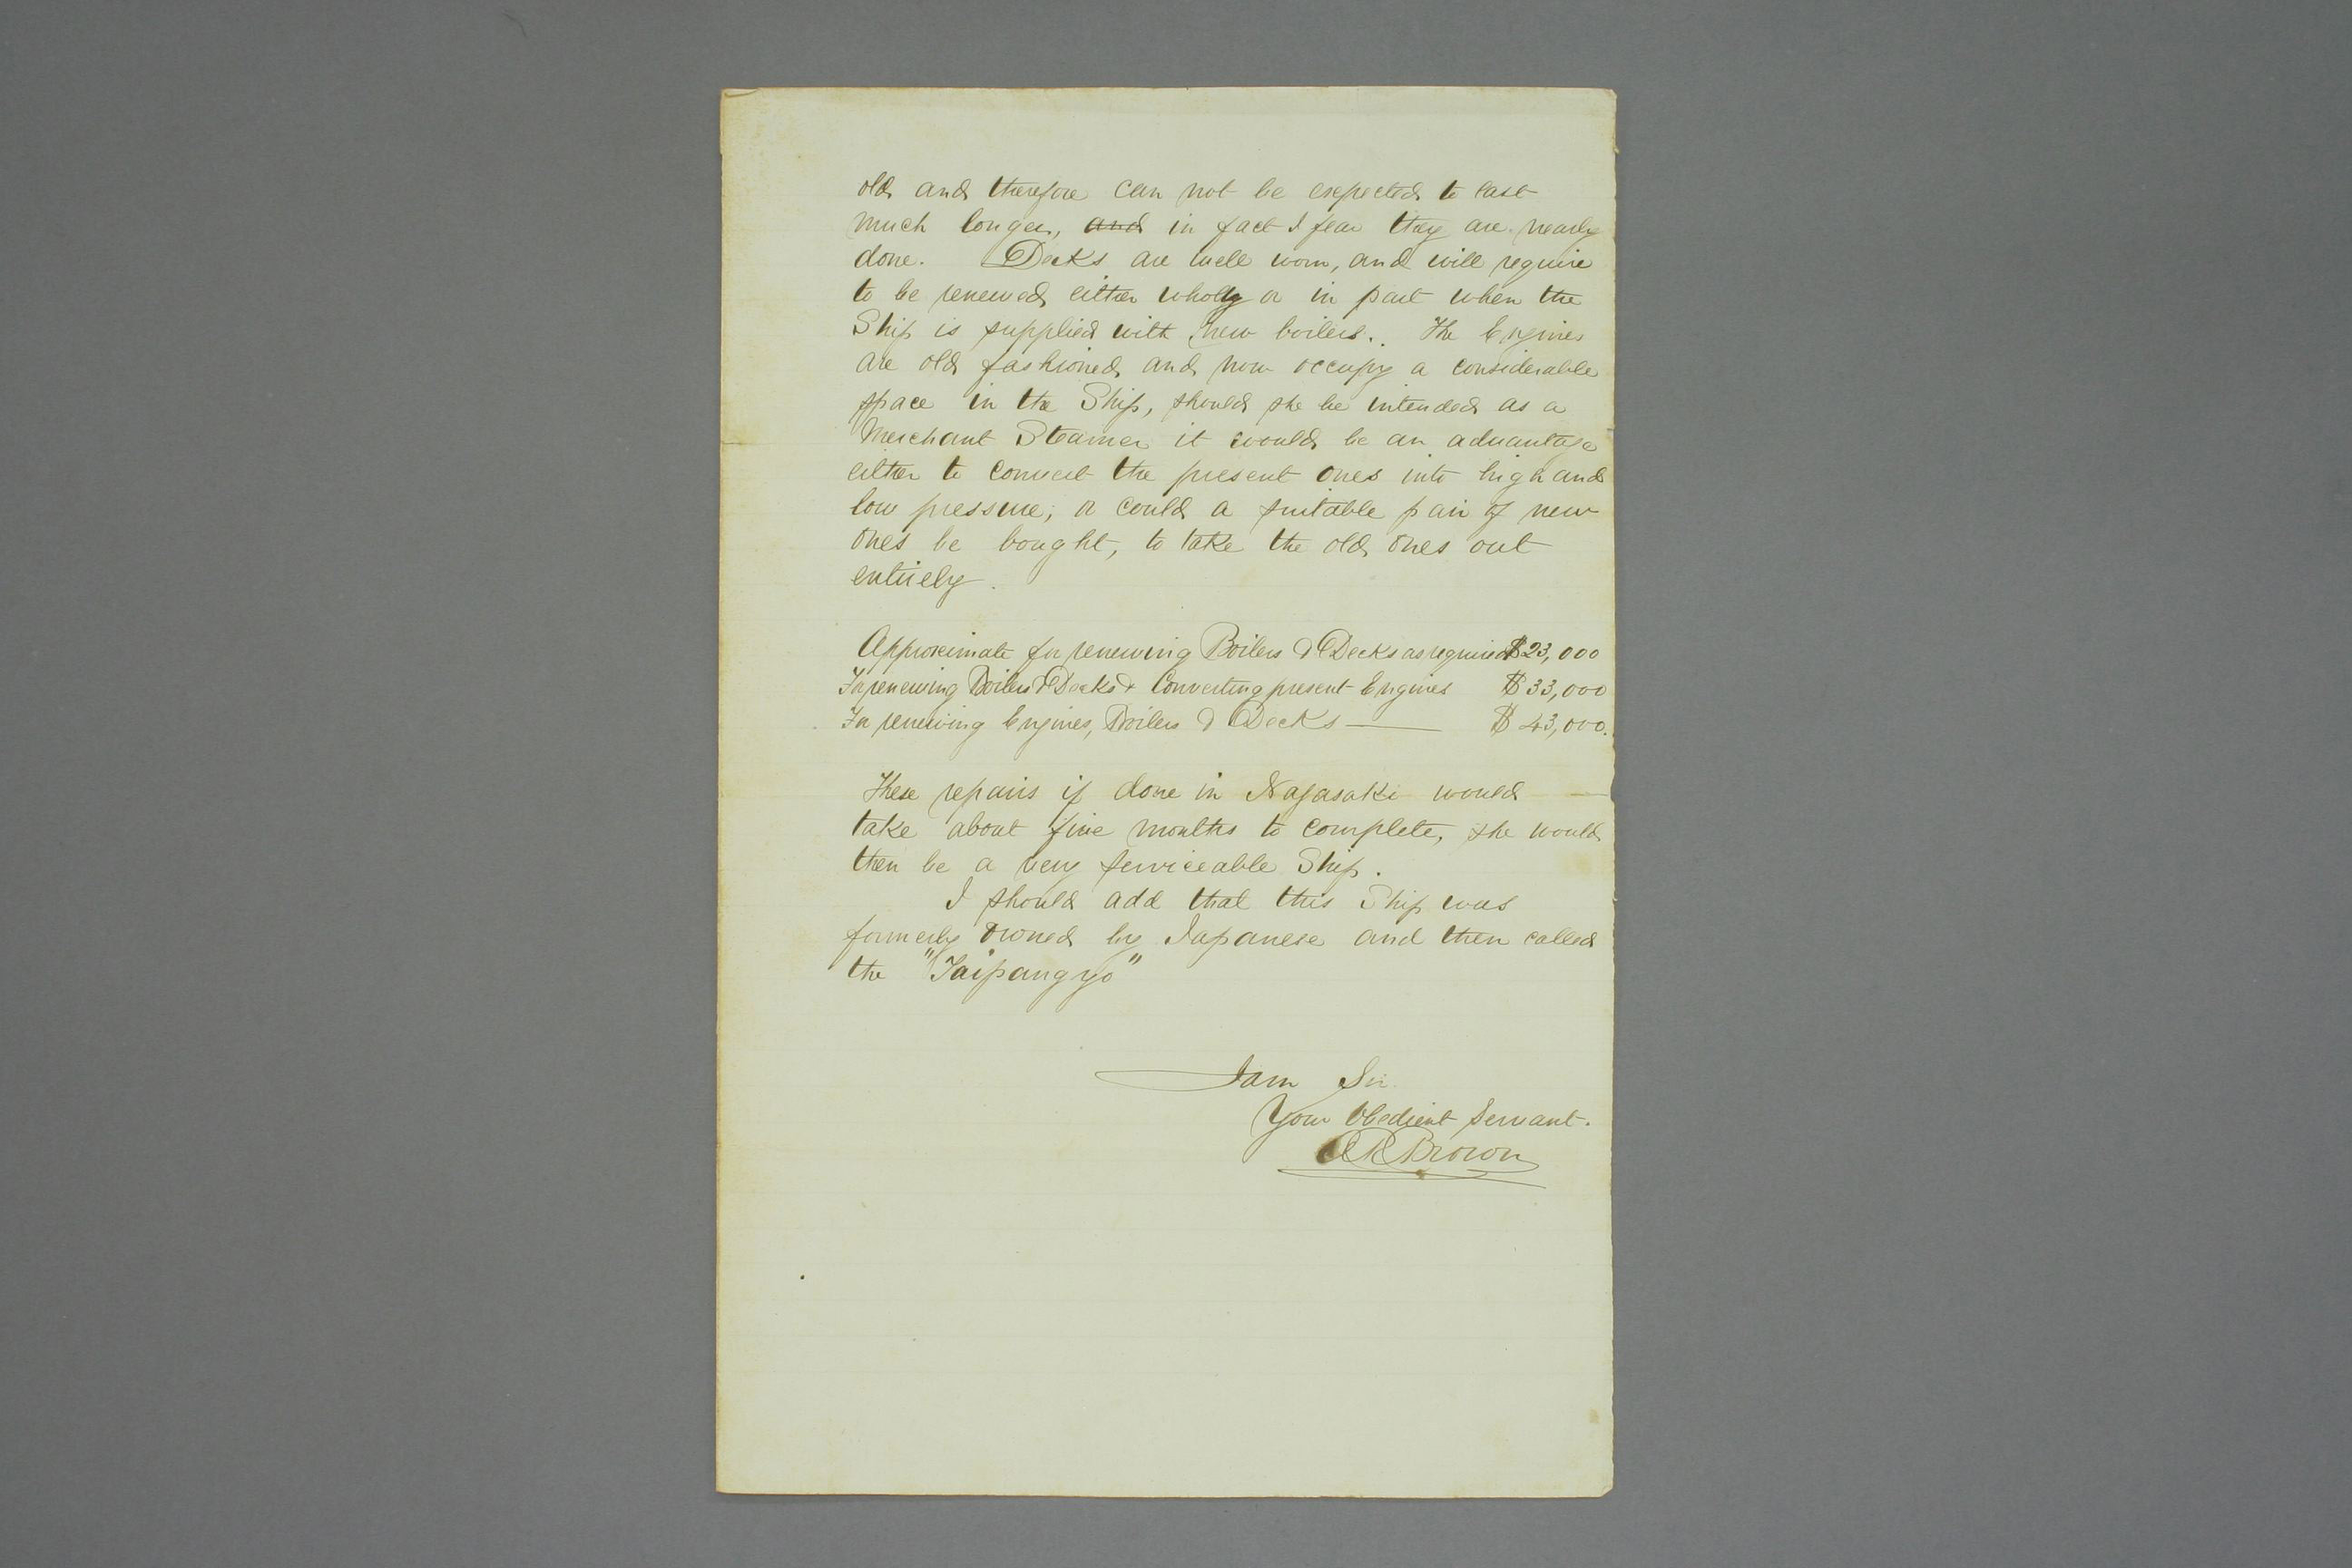 old and therefore can not be expected to last
much longer, and in fact I fear they are nearly
done. Decks are well worn, and will require
to be renewed either wholly or in part when the
Ship is supplied with new boilers. The Engines
are old fashioned and now occupy a considerable
space in the Ship, should she be intended as a
Merchant Steamer it would be an advantage
either to convert the present ones into high and
low pressure; or could a suitable pair of new
ones be bought, to take the old ones out
entirely.
Approximate for renewing Boilers & Decks as required $23,000
For renewing Boilers & Decks & Converting present Engines $33,000
For renewing Engines, Boilers & Decks — $43,000.
These repairs if done in Nagasaki would —
take about five months to complete, she would
then be a very serviceable Ship.
I should add that this Ship was
formerly owned by Japanese and then called
the "Taipangyo"
I am Sir
Your Obedient Servant.
A R Brown